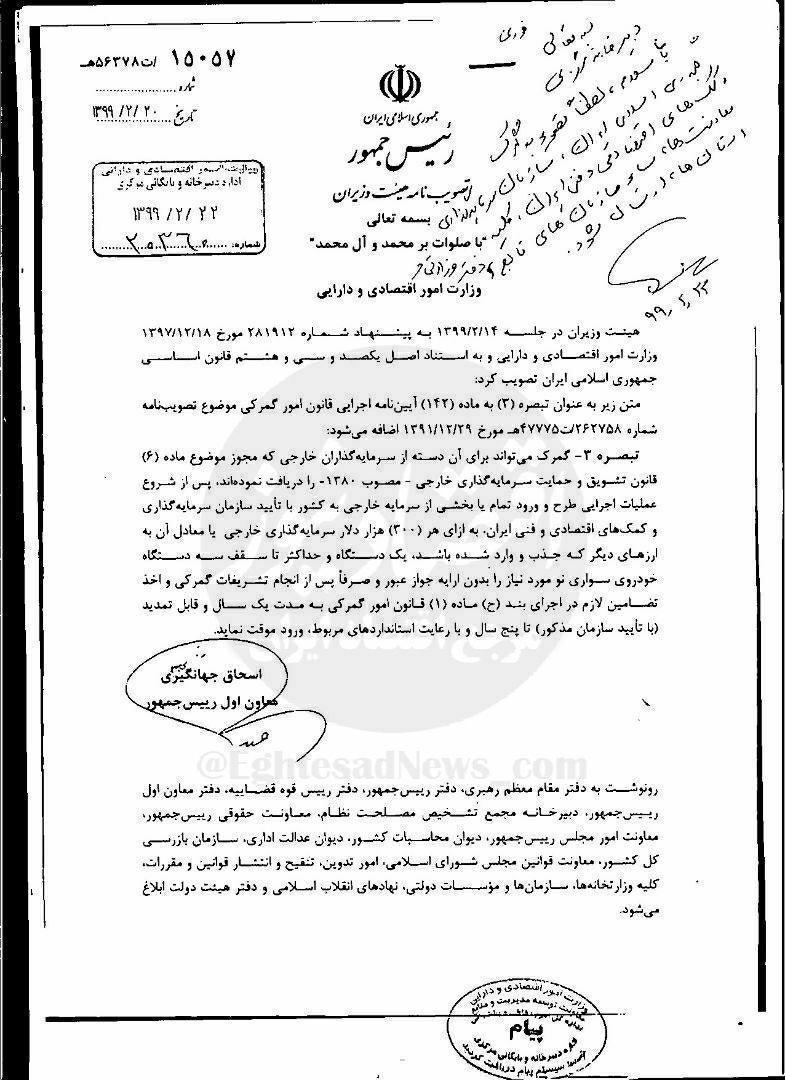 ۱۵۰۵۷ /ت۵۶۳۷۸هـ
شماره
تاریخ ۱۳۹۹/۲/۲۰
جمهوری اسلامی ایران
رئیس جمهور
تصویب نامه هیئت وزیران
بسمه تعالی
"با صلوات بر محمد و آل محمد"
وزارت امور اقتصادی و دارایی
اداره دبیرخانه و بایگانی مرکزی
۱۳۹۹/۲/۲۲
شماره:
فوری
بسمه تعالی
۹۹,۲,۲۳
وزارت امور اقتصادی و دارایی
هیئت وزیران در جلسه ۱۳۹۹/۲/۱۴ به پیشنهاد شماره ۲۸۱۹۱۲ مورخ ۱۳۹۷/۱۲/۱۸
وزارت امور اقتصادی و دارایی و به استناد اصل یکصد و سی و هشتم قانون اساسی
جمهوری اسلامی ایران تصویب کرد:
متن زیر به عنوان تبصره (۳) به ماده (۱۴۲) آیین‌نامه اجرایی قانون امور گمرکی موضوع تصویب‌نامه
شماره ۲۶۲۷۵۸/ت۴۷۷۷۵هـ مورخ ۱۳۹۱/۱۲/۲۹ اضافه می‌شود:
تبصره ۳- گمرک می‌تواند برای آن دسته از سرمایه‌گذاران خارجی که مجوز موضوع ماده (۶)
قانون تشویق و حمایت سرمایه‌گذاری خارجی - مصوب ۱۳۸۰- را دریافت نموده‌اند، پس از شروع
عملیات اجرایی طرح و ورود تمام یا بخشی از سرمایه خارجی به کشور با تأیید سازمان سرمایه‌گذاری
و کمک‌های اقتصادی و فنی ایران، به ازای هر (۳۰۰) هزار دلار سرمایه‌گذاری خارجی یا معادل آن به
ارزهای دیگر که جذب و وارد شده باشد، یک دستگاه و حداکثر تا سقف سه دستگاه
خودروی سواری نو مورد نیاز را بدون ارایه جواز عبور و صرفاً پس از انجام تشریفات گمرکی و اخذ
تضامین لازم در اجرای بند (ح) ماده (۱) قانون امور گمرکی به مدت یک سال و قابل تمدید
(با تأیید سازمان مذکور) تا پنج سال و با رعایت استانداردهای مربوط، ورود موقت نماید.
اسحاق جهانگیری
معاون اول رییس‌جمهور
@EghtesadNews_com
رونوشت به دفتر مقام معظم رهبری، دفتر رییس‌جمهور، دفتر رییس قوه قضاییه، دفتر معاون اول
رییس‌جمهور، دبیرخانه مجمع تشخیص مصلحت نظام، معاونت حقوقی رییس‌جمهور،
معاونت امور مجلس رییس‌جمهور، دیوان محاسبات کشور، دیوان عدالت اداری، سازمان بازرسی
کل کشور، معاونت قوانین مجلس شورای اسلامی، امور تدوین، تنقیح و انتشار قوانین و مقررات،
کلیه وزارتخانه‌ها، سازمان‌ها و مؤسسات دولتی، نهادهای انقلاب اسلامی و دفتر هیئت دولت ابلاغ
می‌شود.
وزارت امور اقتصادی و دارایی
معاونت توسعه مدیریت و منابع
پیام
اداره دبیرخانه و بایگانی مرکزی
سیستم پیام دریافت گردید